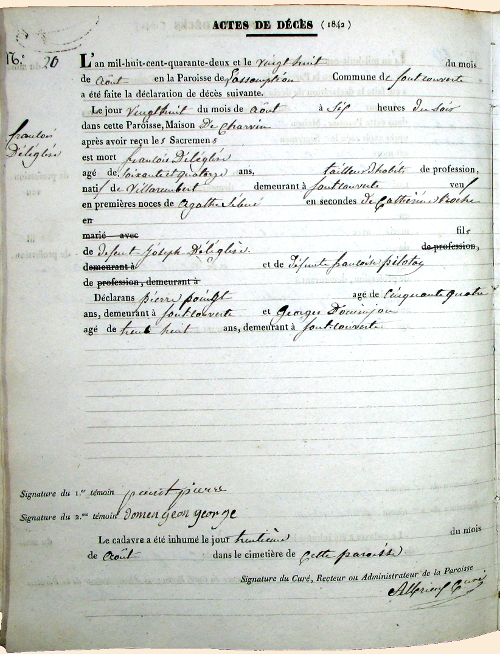 ACTES DE DÉCÈS (1842)
N.º 20
L'an mil-huit-cent-quarante-deux et le vingt huit du mois
de Août en la Paroisse de L'assomption Commune de font couverte
a été faite la déclaration de décès suivante.
Le jour vingt huit du mois de août à Six heures du soir
dans cette Paroisse, Maison De Charvin
francois
Déléglise
après avoir reçu les Sacremens
est mort francois Déléglise
agé de soixante et quatorze ans, tailleur d'habits de profession,
natif de Villarembert demeurant à font couverte veuf
en premières noces de agathe en secondes de Catherine
en
marié avec fils
de défunt Joseph Déléglise de profession,
demeurant à et de défunte francoise
de profession, demeurant à
Déclarans pierre agé de Cinquante quatre
ans, demeurant à font couverte et George
agé de trente huit ans, demeurant à font couverte
Signature du 1.er témoin pierre
Signature du 2.me témoin domengeon george
Le cadavre a été inhumé le jour trentième du mois
de Août dans le cimetière de Cette paroisse
Signature du Curé, Recteur ou Administrateur de la Paroisse
Curé